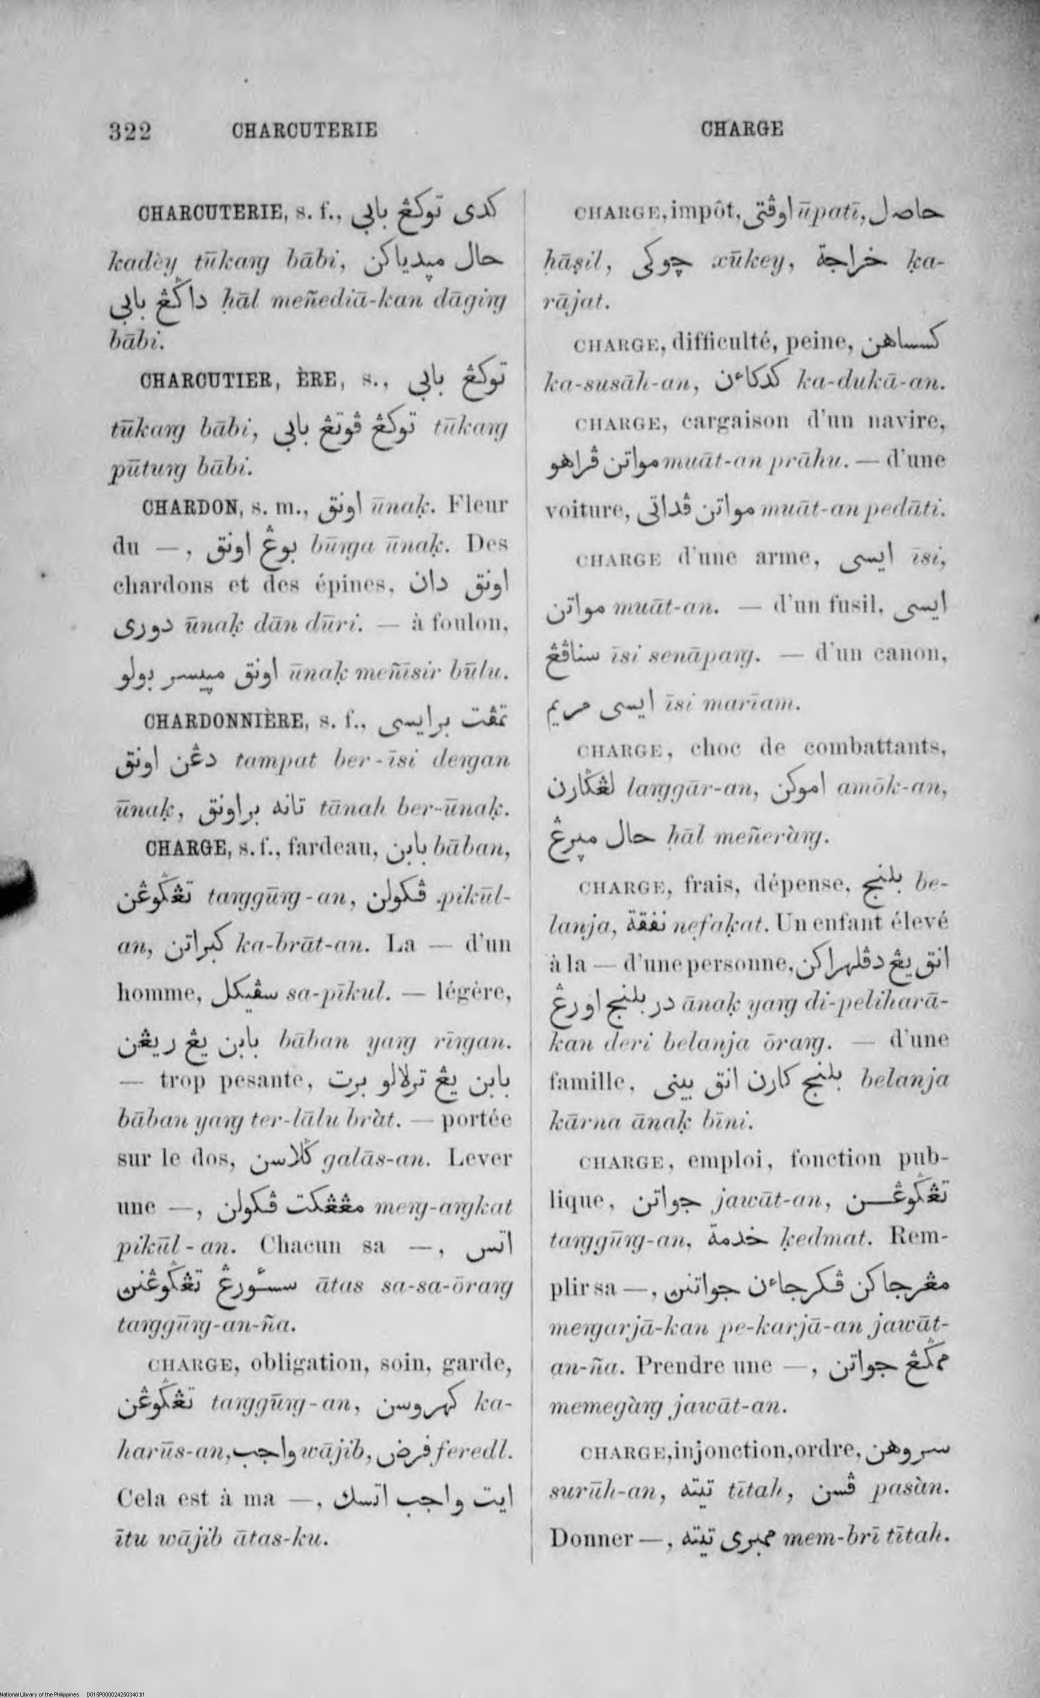 322 CHARCUTERIE CHARGE
CHARCUTERIE, s. f., كدى توكڠ بابي
kadèy tūkaɪg bābi, حال مپدياكن
داݢڠ بابي ḥāl meñediā-kan dāgiɪg
bābi.
CHARCUTIER, ÈRE, s., توكڠ بابي
tūkaɪg bābi, توكڠ ڤوتڠ بابي tūkaɪg
pūtuɪg bābi.
CHARDON, s. m., اونق ūnaḳ. Fleur
du —, بوڠ اونق būɪga ūnaḳ. Des
chardons et des épines, اونق دان
دورى ūnaḳ dān dūri. — à foulon,
اونق مپيسر بولو ūnaḳ meñīsir būlu.
CHARDONNIÈRE, s. f., تمڤت برايسى
دڠن اونق tampat ber-īsi deɪgan
ūnaḳ, تانه براونق tānah ber-ūnaḳ.
CHARGE, s. f., fardeau, بابن bāban,
تڠݢوڠن taɪggūɪg-an, ڤكولن pikūl-
an, كبراتن ka-brāt-an. La — d'un
homme, سڤيكل sa-pīkul. — légère,
بابن يڠ ريڠن bāban yaɪg rīɪgan.
— trop pesante, بابن يڠ ترلالو برت
bāban yaɪg ter-lālu bràt. — portée
sur le dos, ݢلاسن galās-an. Lever
une —, مڠڠكت ڤكولن meɪg-aɪgkat
pikūl-an. Chacun sa —, اتس
سسٴورڠ تڠݢوڠنن ātas sa-sa-ōraɪg
taɪggūɪg-an-ña.
CHARGE, obligation, soin, garde,
تڠݢوڠن taɪggūɪg-an, كهروسن ka-
harūs-an, واجب wājib, فرض feredl.
Cela est à ma —, ايت واجب اتسك
ītu wājib ātas-ku.
CHARGE, impôt, اوڤتى ūpatī, حاصل
ḥāṣil, چوكى xūkey, خراجة ḳa-
rājat.
CHARGE, difficulté, peine, كسساهن
ka-susāh-an, كدكاءن ka-dukā-an.
CHARGE, cargaison d'un navire,
مواتن ڤراهو muāt-an prāhu. — d'une
voiture, مواتن ڤداتى muāt-an pedāti.
CHARGE d'une arme, ايسى īsi,
مواتن muāt-an. — d'un fusil, ايسى
سناڤڠ īsi senāpaɪg. — d'un canon,
ايسى مريم īsi marīam.
CHARGE, choc de combattants,
لڠݢارن laɪggār-an, اموكن amōk-an,
حال مپرڠ ḥāl meñeràɪg.
CHARGE, frais, dépense, بلنج be-
lanja, نفقة nefaḳat. Un enfant élevé
à la — d'une personne, انق يڠ دڤلهراكن
در بلنج اورڠ ānaḳ yaɪg di-peliharā-
kan deri belanja ōraɪg. — d'une
famille, بلنج كارن انق بينى belanja
kārna ānaḳ bīni.
CHARGE, emploi, fonction pub-
lique, جواتن jawāt-an, تڠݢوڠن
taɪggūɪg-an, خدمة ḳedmat. Rem-
plir sa —, مڠرجاكن ڤكرجاءن جواتنن
meɪgarjā-kan pe-karjā-an jawāt-
an-ña. Prendre une —, ممݢڠ جواتن
memegàɪg jawāt-an.
CHARGE, injonction, ordre, سروهن
surūh-an, تيته tītah, ڤسن pasàn.
Donner —, ممبرى تيته mem-brī tītah.
National Library of the Philippines